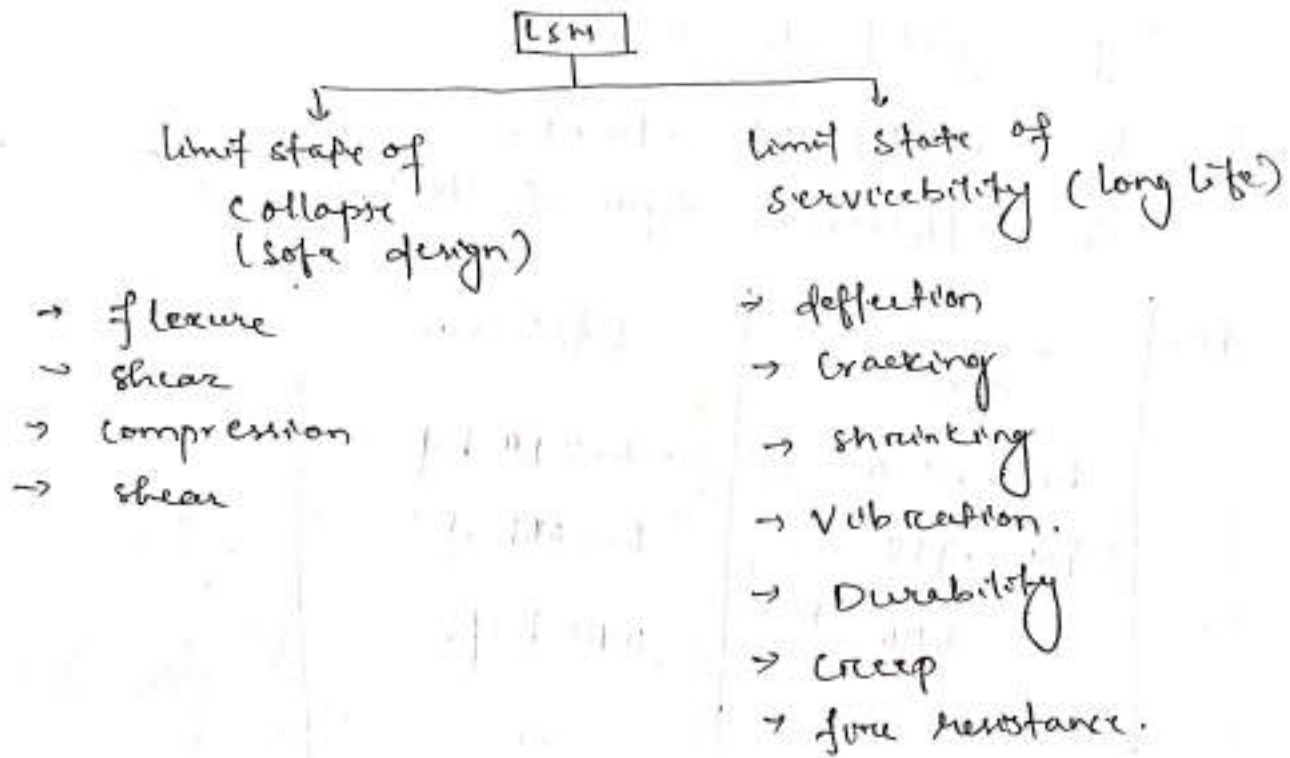 LSM
limit state of
collapse
(safe design)
→ flexure
→ shear
→ compression
→ shear
limit state of
servicebility (long life)
→ deffection
→ Cracking
→ shrinking
→ Vibration.
→ Durability
→ creep
→ fire resistance.